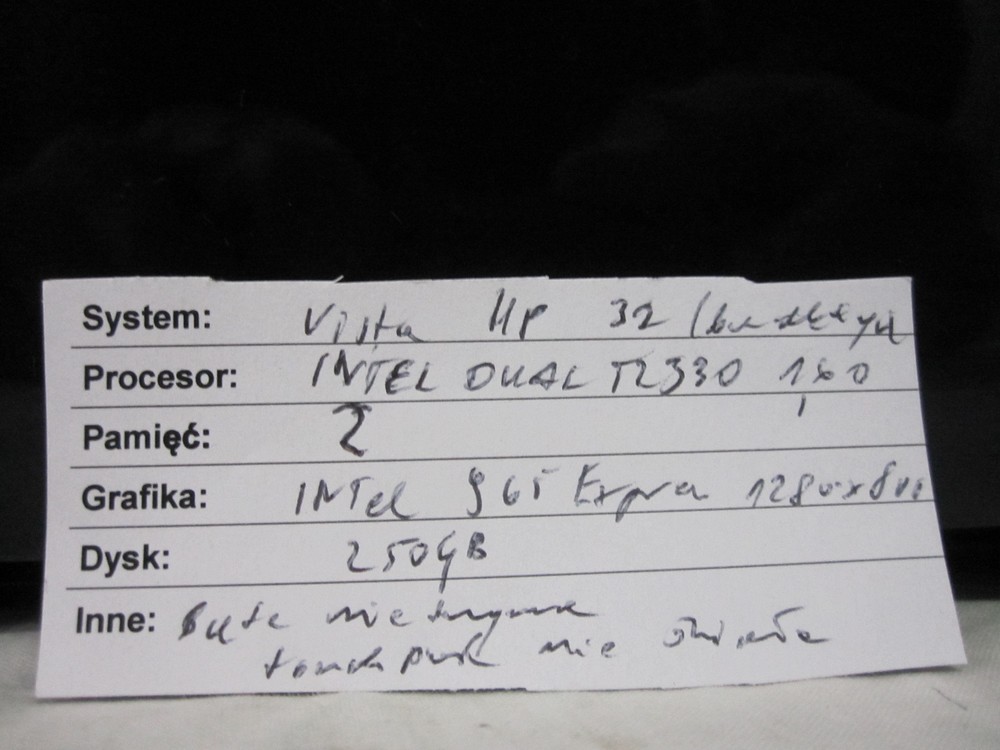 System: Vista HP 32
Procesor: INTEL DUAL T2330 1,60
Pamięć: 2
Grafika: INTel 965 Expres 1280x800
Dysk: 250GB
Inne: nie trzyma
touchpad nie działa